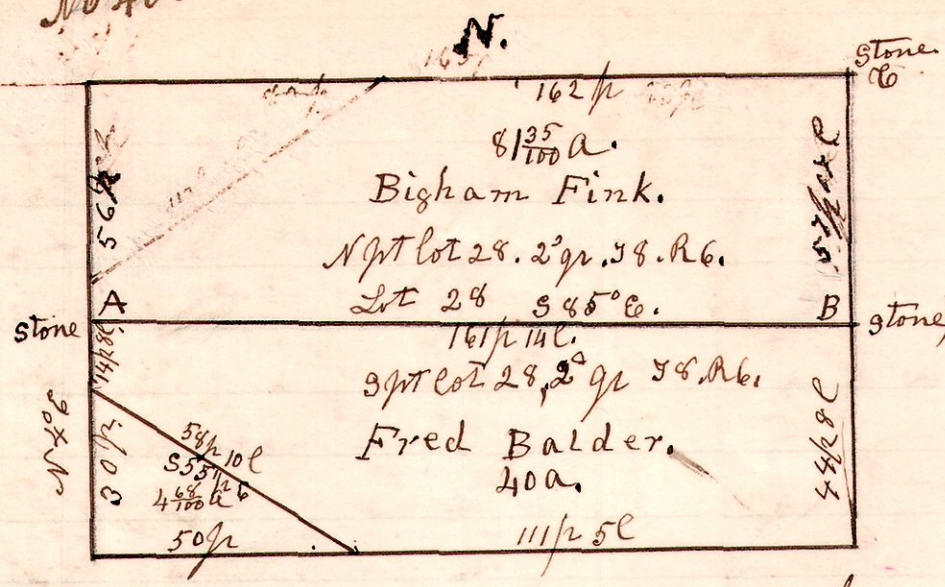 N.
stone
C
162 p
81 35/100 a.
Bigham Fink.
N pt lot 28. 2d qr. T8. R6.
Lot 28 S 85° E.
56 p
A
B
stone
stone
161 p 14 l.
S pt lot 28, 2d qr T8. R6.
Fred Balder.
40 a.
14 p 8 l
30 p
58 p 10 l
S 55 1/2 E
4 68/100 a
50 p
111 p 5 l
44 p 8 l